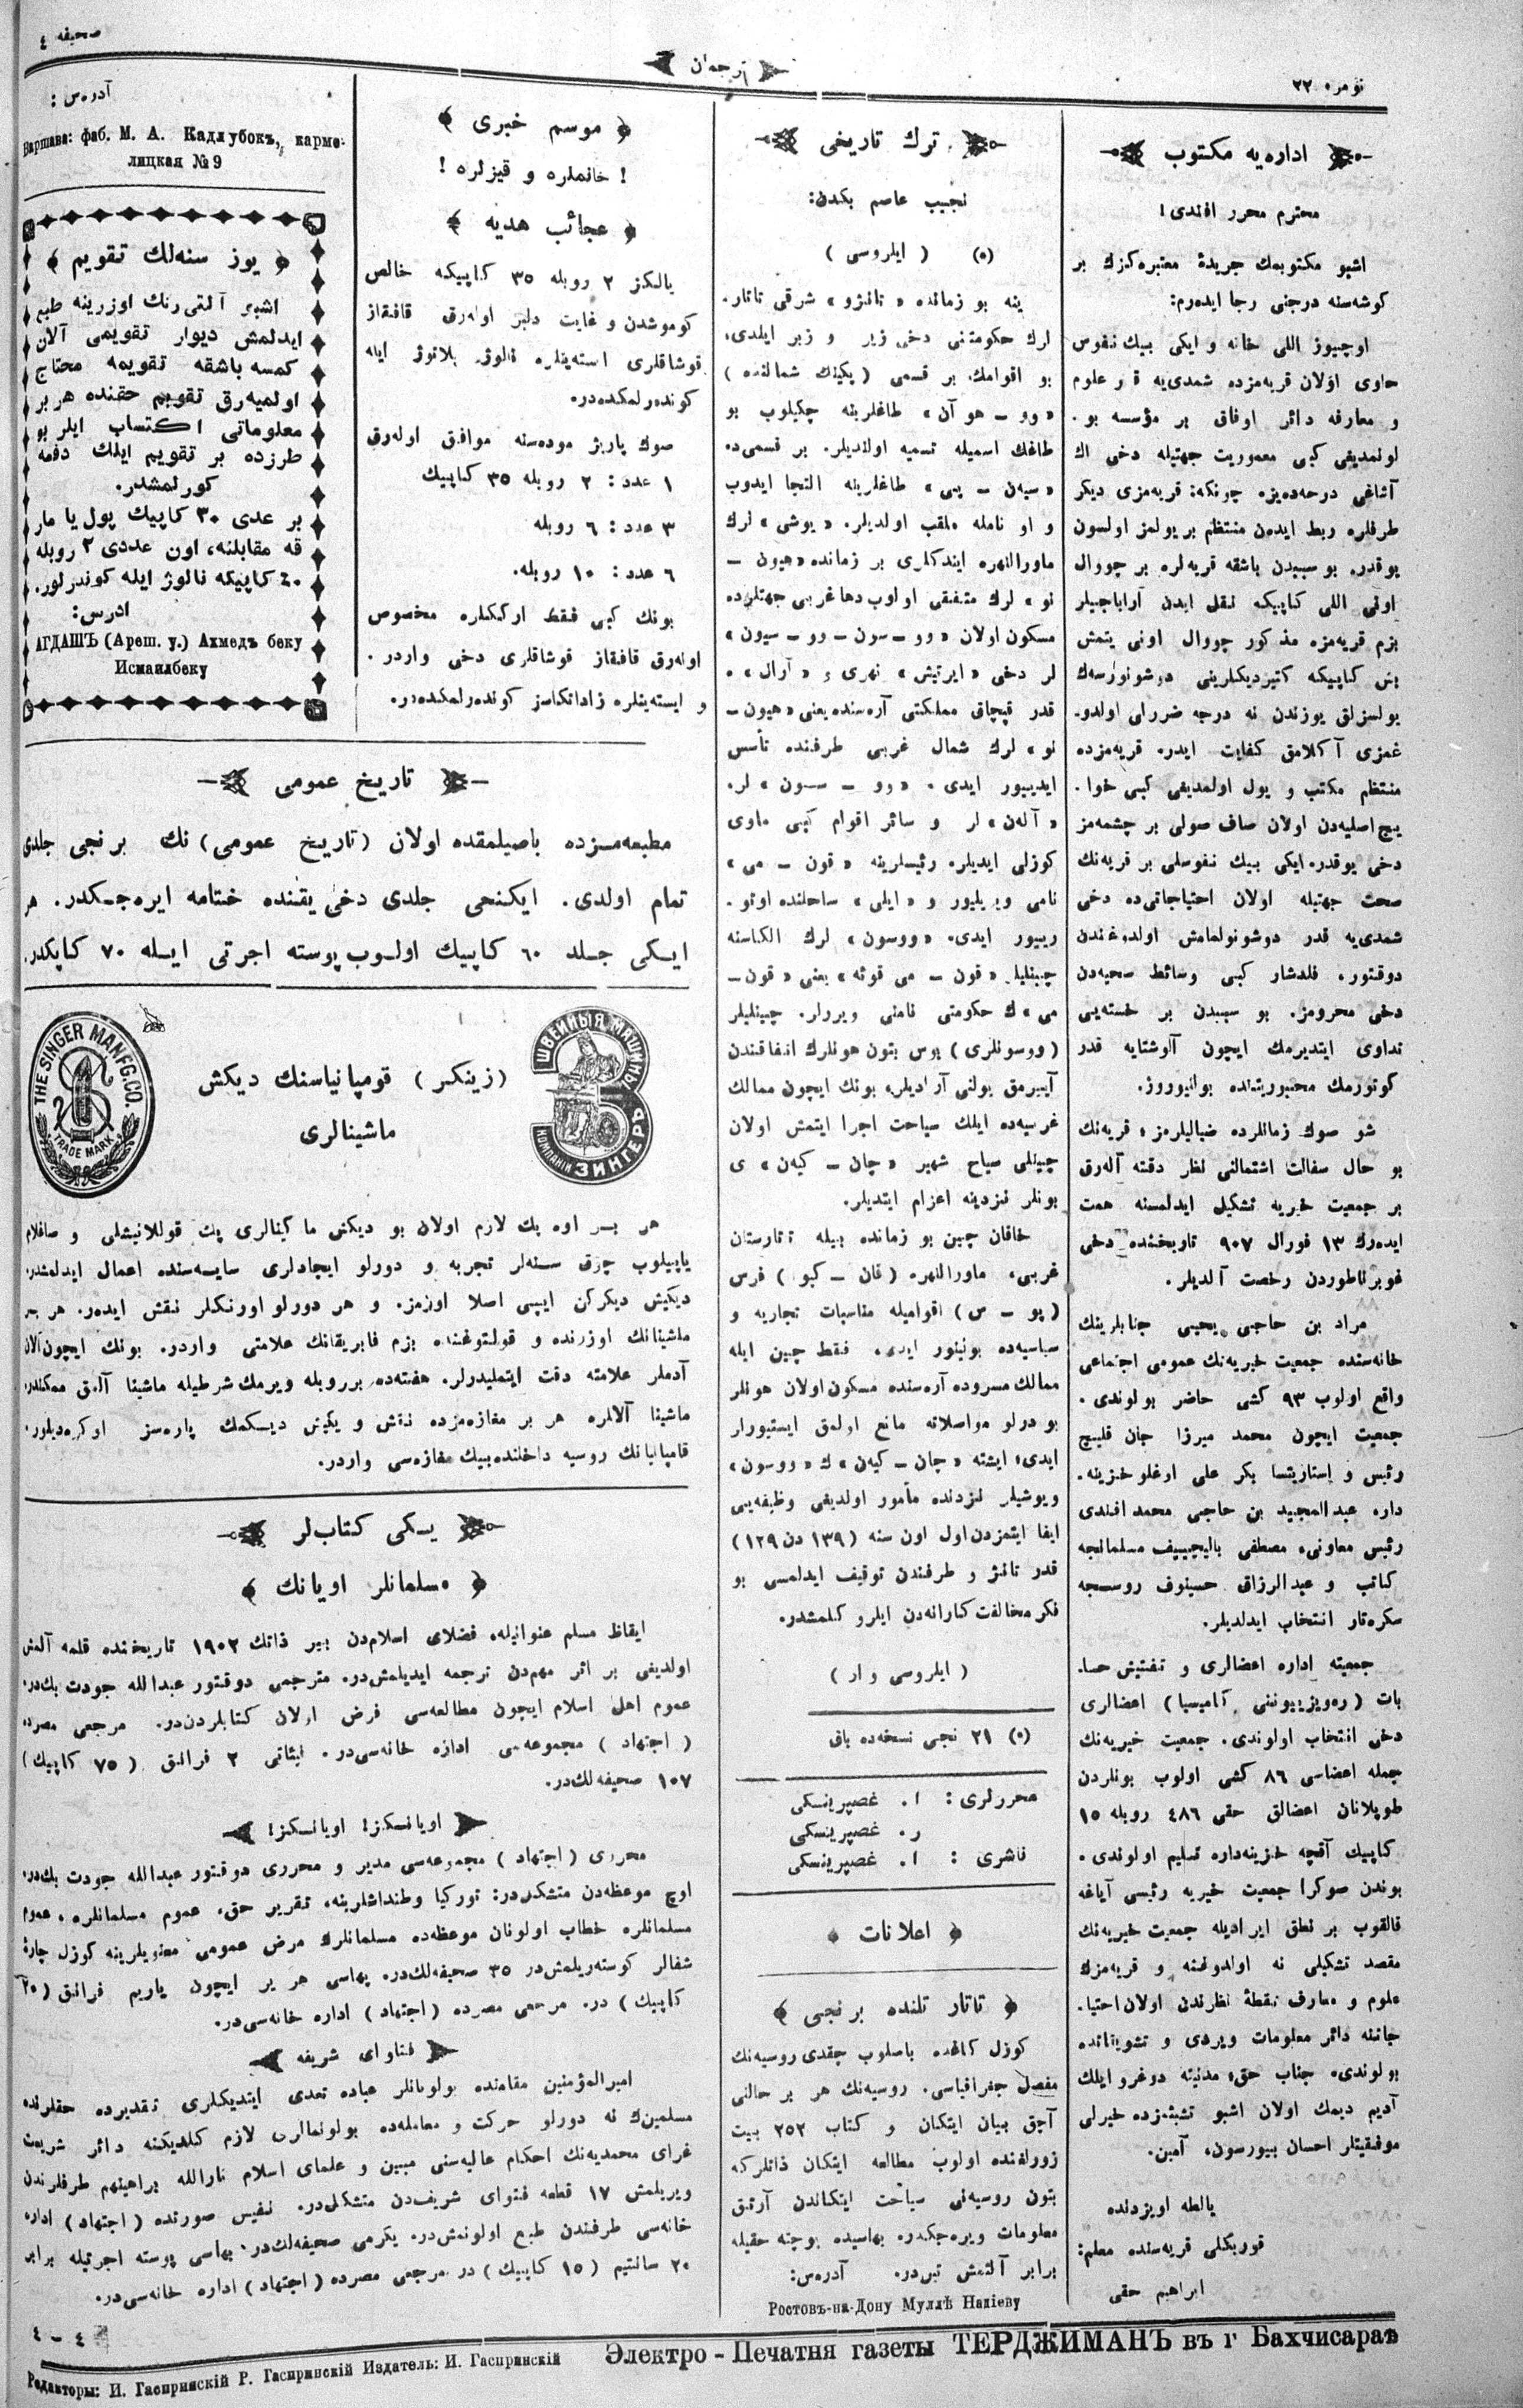 نومرو ٢٢
ترجمان
صحيفه ٤
اداره‌يه مكتوب
محترم محرر افندى!
اشبو مكتوبمك جريدهٔ معتبره‌كزك بر
كوشه‌سنه درجنى رجا ايده‌رم:
اوچيوز اللى خانه و ايكى بيك نفوس
حاوى اولان قريه‌مزده شمدى‌يه قدر علوم
و معارفه دائر اوفاق بر مؤسسه بو.
لولمديغى كبى معموريت جهتيله دخى اك
آشاغى درجه‌ده‌يز. چونكه: قريه‌مزى ديكر
طرفلره ربط ايدەن منتظم بر يولمز اولسون
يوقدر. بو سببدن باشقه قريه‌لره بر چووال
اونى اللى كاپيكه نقل ايدن آراباجيلر
بزم قريه‌مزه مذكور چووال اونى يتمش
بش كاپيكه كتيرديكلرينى دوشونورسه‌ك
يولسزلق يوزندن نه درجه ضررلى اولدو.
غمزى آكلامق كفايت ايدر. قريه‌مزده
منتظم مكتب و يول اولمديغى كبى حوا.
يج اصليه‌دن اولان صاف صولى بر چشمه‌مز
دخى يوقدر. ايكى بيك نفوسلى بر قريه‌نك
صحت جهتيله اولان احتياجاتى‌ده دخى
شمدى‌يه قدر دوشونولمامش اولديغندن
دوقتور، فلدشار كبى وسائط صحيه‌دن
دخى محرومز. بو سببدن بر خسته‌يى
تداوى ايتديرمك ايچون آلوشتايه قدر
كوتورمك مجبوريتنده بولنيوروز.
شو صوك زمانلرده ضياليلرمز، قريه‌نك
بو حال سفالت اشتمالنى نظر دقته آله‌رق
بر جمعيت خيريه تشكيل ايدلمسنه همت
ايده‌رك ١٣ فورال ٩٠٧ تاريخنده دخى
غوبرناطوردن رخصت آلديلر.
مراد بن حاجى يحيى جنابلرينك
خانه‌سنده جمعيت خيريه‌نك عمومى اجتماعى
واقع اولوب ٩٣ كشى حاضر بولوندى.
جمعيت ايچون محمد ميرزا جان قليچ
رئيس و استاريتسا بكر على اوغلو خزينه.
دار، عبدالمجيد بن حاجى محمد افندى
رئيس معاونى، مصطفى باليجييف مسلمانجه
كاتب و عبدالرزاق حسينوف روسجه
سكره‌تار انتخاب ايدلديلر.
جمعيته اداره اعضالرى و تفتيش حسا.
بات (ره‌ويزييوننى كاميسيا) اعضالرى
دخى انتخاب اولوندى. جمعيت خيريه‌نك
جمله اعضاسى ٨٦ كشى اولوب بونلردن
طوپلانان اعضالق حقى ٤٨٦ روبله ١٥
كاپيك آقچه خزينه‌داره تسليم اولوندى.
بوندن صوكرا جمعيت خيريه رئيسى آياغه
قالقوب بر نطق ايراديله جمعيت خيريه‌نك
مقصد تشكيلى نه اولدوغنه و قريه‌مزك
علوم و معارف نقطهٔ نظرندن اولان احتيا.
جاتنه دائر معلومات ويردى و تشويقاتده
بولوندى. جناب حق، مدنيته دوغرو ايلك
آديم ديمك اولان اشبو تشبثمزده خيرلى
موفقيتلر احسان بيورسون، آمين.
يالطه اويزدنده
قوربكلى قريه‌سنده معلم:
ابراهيم حقى
ترك تاريخى
نجيب عاصم بكدن:
(٥) (ايلروسى)
ينه بو زمانده «تانژو» شرقى تاتار.
لرك حكومتنى دخى زير و زبر ايلدى،
بو اقوامك بر قسمى (پكينك شمالنده)
«وو – هوآن» طاغلرينه چكيلوب بو
طاغك اسميله تسميه اولنديلر. بر قسمى‌ده
«سيه‌ن – پى» طاغلرينه التجا ايدوب
و او نامله ملقب اولديلر. «يوشى» لرك
ماورالنهره ايندكلرى بر زمانده «هيون –
نو» لرك متفقى اولوب دها غربى جهتلرده
مسكون اولان «وو – سون – وو – سيون»
لر دخى «ايرتيش» نهرى و «آرال» ه
قدر قپچاق مملكتى آره‌سنده يعنى «هيون –
نو» لرك شمال غربى طرفنده تأسس
ايدييور ايدى. «وو – سون» لر.
«آلەن» لر و سائر اقوام كبى ماوى
كوزلى ايديلر. رئيسلرينه «قون – مى»
نامى ويريليور و «ايلى» ساحلنده اوتو.
رييور ايدى. «ووسون» لرك الكاسنه
چينليلر «قون – مى قوئه» يعنى «قون –
مى» ك حكومتى نامنى ويررلر. چينليلر
(ووسونلرى) بوس بتون هونلرك اتفاقندن
آييرمق يولنى آراديلر، بونك ايچون ممالك
غربيه‌ده ايلك سياحت اجرا ايتمش اولان
چينلى سياح شهير «چان – كيه‌ن» ى
بونلر نزدينه اعزام ايتديلر.
خاقان چين بو زمانده بيله تاتارستان
غربى، ماورالنهر، (قان – كيو) فرس
(پو – س) اقواميله مناسبات تجاريه و
سياسيه‌ده بولنيور ايدى، فقط چين ايله
ممالك مسروده آره‌سنده مسكون اولان هونلر
بو درلو مواصلاته مانع اولمق ايستيورلر
ايدى، ايشته «چان – كيه‌ن» ك «ووسون»
ويوشيلر نزدنده مأمور اولديغى وظيفه‌يى
ايفا ايتمزدن اول اون سنه (١٣٩ دن ١٢٩)
قدر تانژو طرفندن توقيف ايدلمسى بو
فكر مخالفت كارانه‌دن ايلرو كلمشدر.
(ايلروسى وار)
(٥) ٢١ نجى نسخه‌ده باق
محررلرى: ا. غصپرينسكى
ر. غصپرينسكى
ناشرى: ا. غصپرينسكى
اعلانات
تاتار تلنده برنجى
كوزل كاغده باصلوب چقدى روسيه‌نك
مفصل جغرافياسى. روسيه‌نك هر بر حالنى
آچق بيان ايتكان و كتاب ٢٥٢ بيت
زورلغنده اولوب مطالعه ايتكان ذاتلركه
بتون روسيه‌نى سياحت ايتكاندن آرتق
معلومات ويره‌جكدر. بهاسيده بوچته حقيله
برابر آلتمش تين‌در. آدرس:
Ростовъ-на-Дону Муллѣ Наліеву
موسم خبرى
! خانملره و قيزلره !
عجائب هديه
يالكز ٢ روبله ٣٥ كاپيكه خالص
كوموشدن و غايت دلبر اوله‌رق قافقاز
قوشاقلرى استه‌ينلره نالوژ پلاتوژ ايله
كوندرلمكده‌در.
صوك پاريژ موده‌سنه موافق اوله‌رق
١ عدد: ٢ روبله ٣٥ كاپيك
٣ عدد: ٦ روبله
٦ عدد: ١٠ روبله.
بونك كبى فقط ارككلره مخصوص
اوله‌رق قافقاز قوشاقلرى دخى واردر.
و ايسته‌ينلره زاداتكاسز كونده‌رلمكده‌در.
آدرەس:
Варшава: фаб. М. А. Кадлубокъ, карме-
лицкая №9
يوز سنه‌لك تقويم
اشبو آلتى رنك اوزرينه طبع
ايدلمش ديوار تقويمى آلان
كمسه باشقه تقويمه محتاج
اولميه‌رق تقويم حقنده هر بر
معلوماتى اكتساب ايلر بو
طرزده بر تقويم ايلك دفعه
كورلمشدر.
بر عدى ٣٠ كاپيك پول يا مار
قه مقابلنه، اون عددى ٢ روبله
٤٠ كاپيكه نالوژ ايله كوندرلور.
ادرس:
АГДАШЪ (Ареш. у.) Ахмедъ беку
Исмаилбеку
تاريخ عمومى
مطبعه‌مزده باصيلمقده اولان (تاريخ عمومى) نك برنجى جلدى
تمام اولدى. ايكنجى جلدى دخى يقنده ختامه ايره‌جكدر. هر
ايكى جلد ٦٠ كاپيك اولوب پوسته اجرتى ايله ٧٠ كاپكدر.
THE SINGER MANFG. CO.
TRADE MARK
(زينكر) قومپانياسنك ديكش
ماشينالرى
ШВЕЙНЫЯ МАШИНЫ
КОМПАНІИ ЗИНГЕРЪ
هر بر اوه پك لازم اولان بو ديكش ماكينالرى پك قوللانيشلى و صاغلام
ياپيلوب چوق سنه‌لر تجربه و دورلو ايجادلرى سايه‌سنده اعمال ايدلمشدر.
ديكيش ديكركن ايپى اصلا اوزمز. و هر دورلو اورنكلر نقش ايده‌ر. هر بر
ماشينانك اوزرنده و قولتوغنده بزم فابريقانك علامتى واردر. بونك ايچون آلان
آدملر علامته دقت ايتمليدرلر. هفته‌ده بر روبله ويرمك شرطيله ماشينا آلمق ممكندر.
ماشينا آلانلره هر بر مغازه‌مزده نقش و ديكيش ديكمك پاره‌سز اوكره‌ديلور.
قامپانيانك روسيه داخلنده بيك مغازه‌سى واردر.
يكى كتاب‌لر
مسلمانلر اويانك
ايقاظ مسلم عنوانيله، فضلاى اسلام‌دن بير ذاتك ١٩٠٢ تاريخنده قلمه آلمش
اولديغى بر اثر مهم‌دن ترجمه ايديلمش‌در. مترجمى دوقتور عبدالله جودت بك‌در.
عموم اهل اسلام ايچون مطالعه‌سى فرض اولان كتابلردن‌در. مرجعى مصرده
(اجتهاد) مجموعه‌سى اداره خانه‌سى‌در. فيئاتى ٢ فرانق (٧٥ كاپيك)
١٠٧ صحيفه‌لك‌در.
اويانكز! اويانكز!
محررى (اجتهاد) مجموعه‌سى مدير و محررى دوقتور عبدالله جودت بك‌در.
اوچ موعظه‌دن متشكلدر: توركيا وطنداشلرينه، تقرير حق، عموم مسلمانلره، عموم
مسلمانلره خطاب اولونان موعظه‌ده مسلمانلرك مرض عمومى معنويلرينه كوزل چارهٔ
شفالر كوسته‌ريلمش‌در ٣٥ صحيفه‌لك‌در. بهاسى هر بر ايچون ياريم فرانق (٢٠
كاپيك) در. مرجعى مصرده (اجتهاد) اداره خانه‌سى‌در.
فتاواى شريفه
اميرالمؤمنين مقامنده بولونانلر عباده تعدى ايتديكلرى تقديرده حقلرنده
مسلمين‌ك نه دورلو حركت و معامله‌ده بولونمالرى لازم كلديكنه دائر شريعت
غراى محمديه‌نك احكام عاليه‌سنى مبين و علماى اسلام نارالله براهينهم طرفلرندن
ويريلمش ١٧ قطعه فتواى شريف‌دن متشكل‌در. نفيس صورتده (اجتهاد) اداره
خانه‌سى طرفندن طبع اولونمش‌در. يكرمى صحيفه‌لك‌در. بهاسى پوسته اجرتيله برابر
٢٠ سانتيم (١٥ كاپيك) در. مرجعى مصرده (اجتهاد) اداره خانه‌سى‌در.
٤ – ٤
Редакторы: И. Гаспринскій Р. Гаспринскій Издатель: И. Гаспринскій
Электро - Печатня газеты ТЕРДЖИМАНЪ въ г Бахчисараѣ